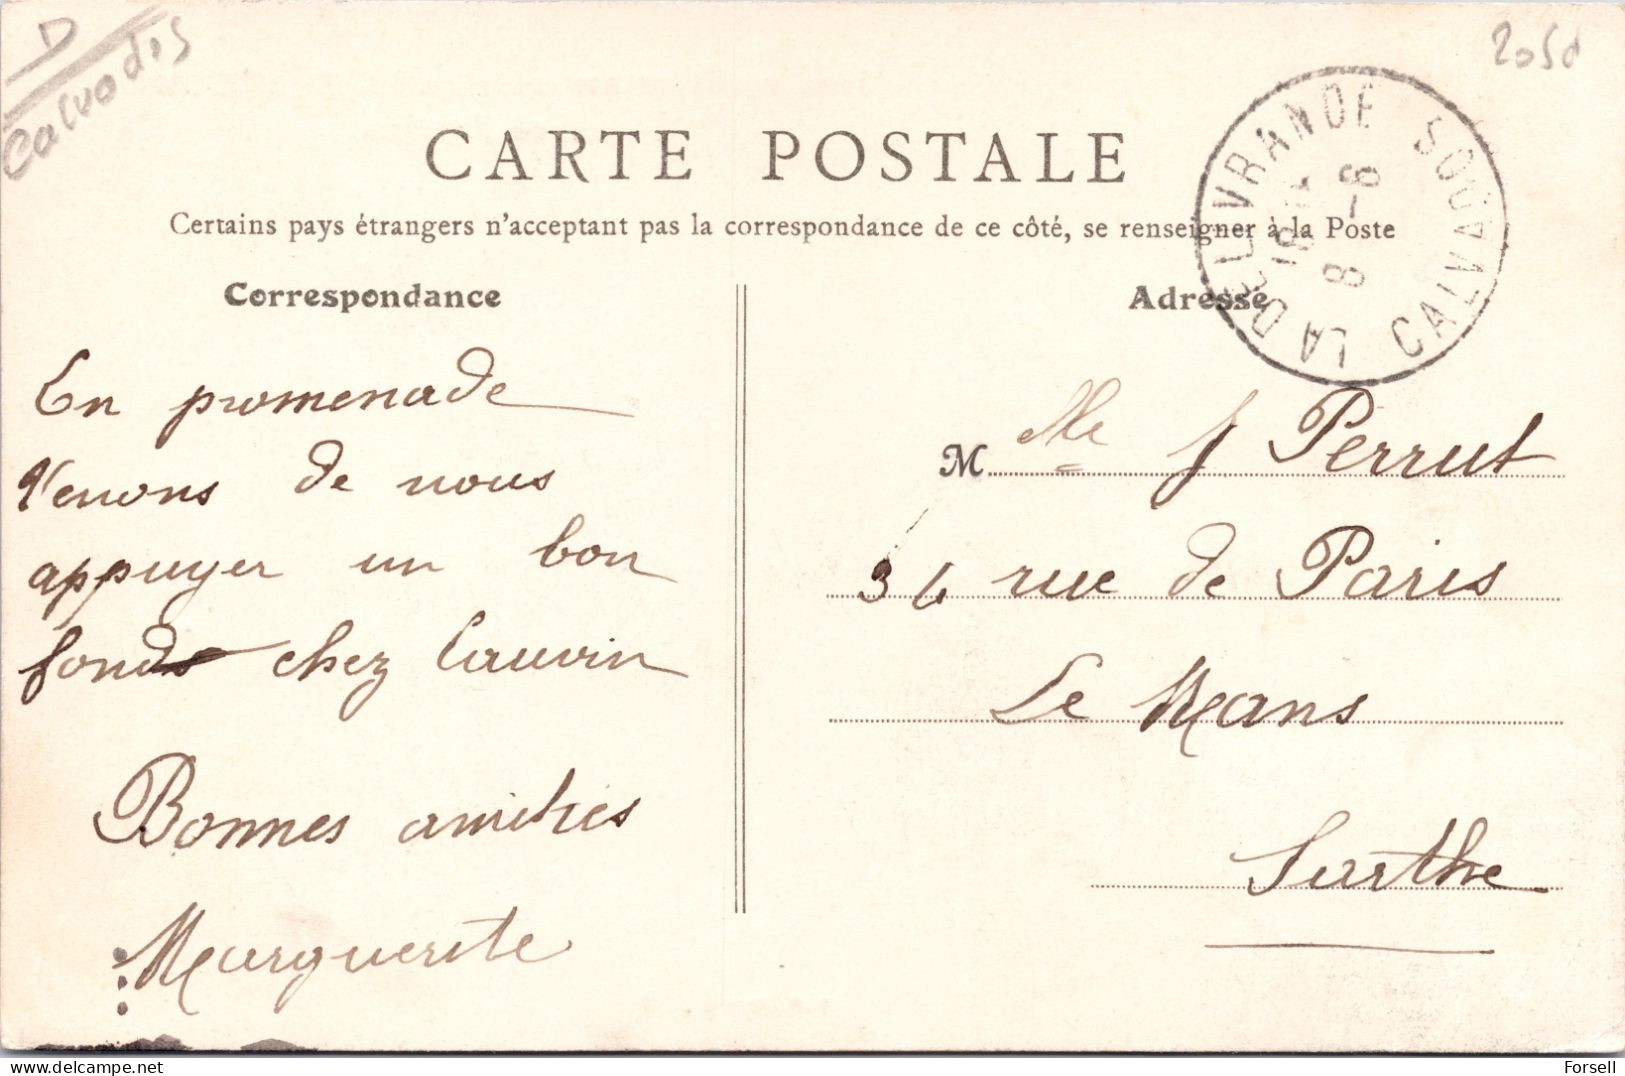 D
Calvados
2050
CARTE POSTALE
Certains pays étrangers n'acceptant pas la correspondance de ce côté, se renseigner à la Poste
Correspondance
En promenade
Venons de nous
appuyer un bon
fonds chez Cauvin
Bonnes amitiés
Marguerite
Adresse
LA DELIVRANDE CALVADOS
8-6
Mlle J Perrut
34 rue de Paris
Le Mans
Sarthe
delcampe.net
Forsell